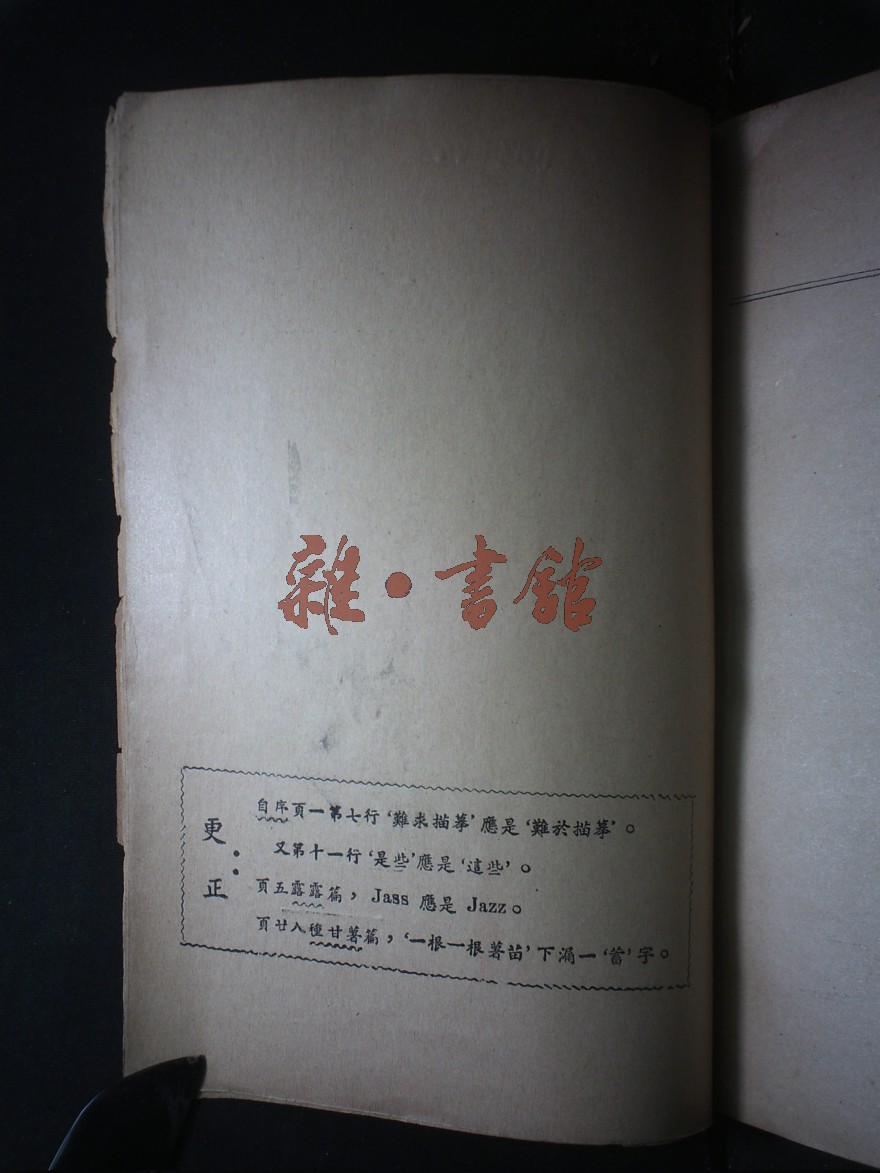 雜•書館
更正：
自序頁一第七行‘難求描摹’應是‘難於描摹’。
又第十一行‘是些’應是‘這些’。
頁五露露篇，Jass 應是 Jazz。
頁廿八種甘薯篇，‘一根一根薯苗’下漏一‘當’字。